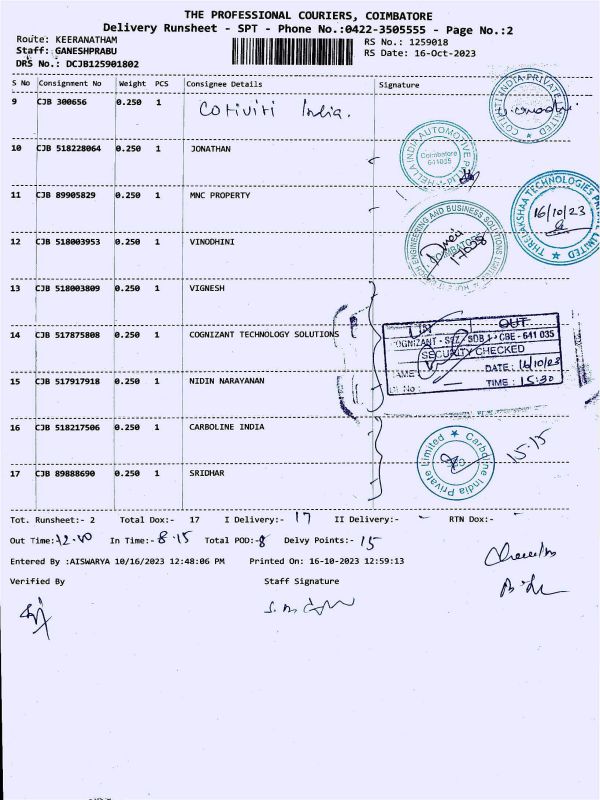 THE PROFESSIONAL COURIERS, COIMBATORE
Delivery Runsheet - SPT - Phone No.:0422-3505555 - Page No.:2
Route: KEERANATHAM
RS No.: 1259018
Staff: GANESHPRABU
RS Date: 16-Oct-2023
DRS No.: DCJB125901802
S No Consignment No Weight PCS Consignee Details Signature
9 CJB 300656 0.250 1 Cotiviti India.
COTIVITI INDIA PRIVATE LIMITED
10 CJB 518228064 0.250 1 JONATHAN
HELLA INDIA AUTOMOTIVE
Coimbatore
641035
11 CJB 89905829 0.250 1 MNC PROPERTY
THRELAKSHAA TECHNOLOGIES
16/10/23
12 CJB 518003953 0.250 1 VINODHINI
ENGINEERING AND BUSINESS SOLUTIONS
COIMBATORE
13 CJB 518003809 0.250 1 VIGNESH
14 CJB 517875808 0.250 1 COGNIZANT TECHNOLOGY SOLUTIONS
IN OUT
COGNIZANT - SEZ, SDB 1 • CBE - 641 035
SECURITY CHECKED
NAME DATE : 16/10/23
No : TIME : 15:30
15 CJB 517917918 0.250 1 NIDIN NARAYANAN
16 CJB 518217506 0.250 1 CARBOLINE INDIA
Carboline India Private Limited
15.15
17 CJB 89888690 0.250 1 SRIDHAR
Tot. Runsheet:- 2 Total Dox:- 17 I Delivery:- 17 II Delivery:- - RTN Dox:- -
Out Time:12.00 In Time:- 8.15 Total POD:-8 Delvy Points:- 15
Entered By :AISWARYA 10/16/2023 12:48:06 PM Printed On: 16-10-2023 12:59:13
Verified By Staff Signature